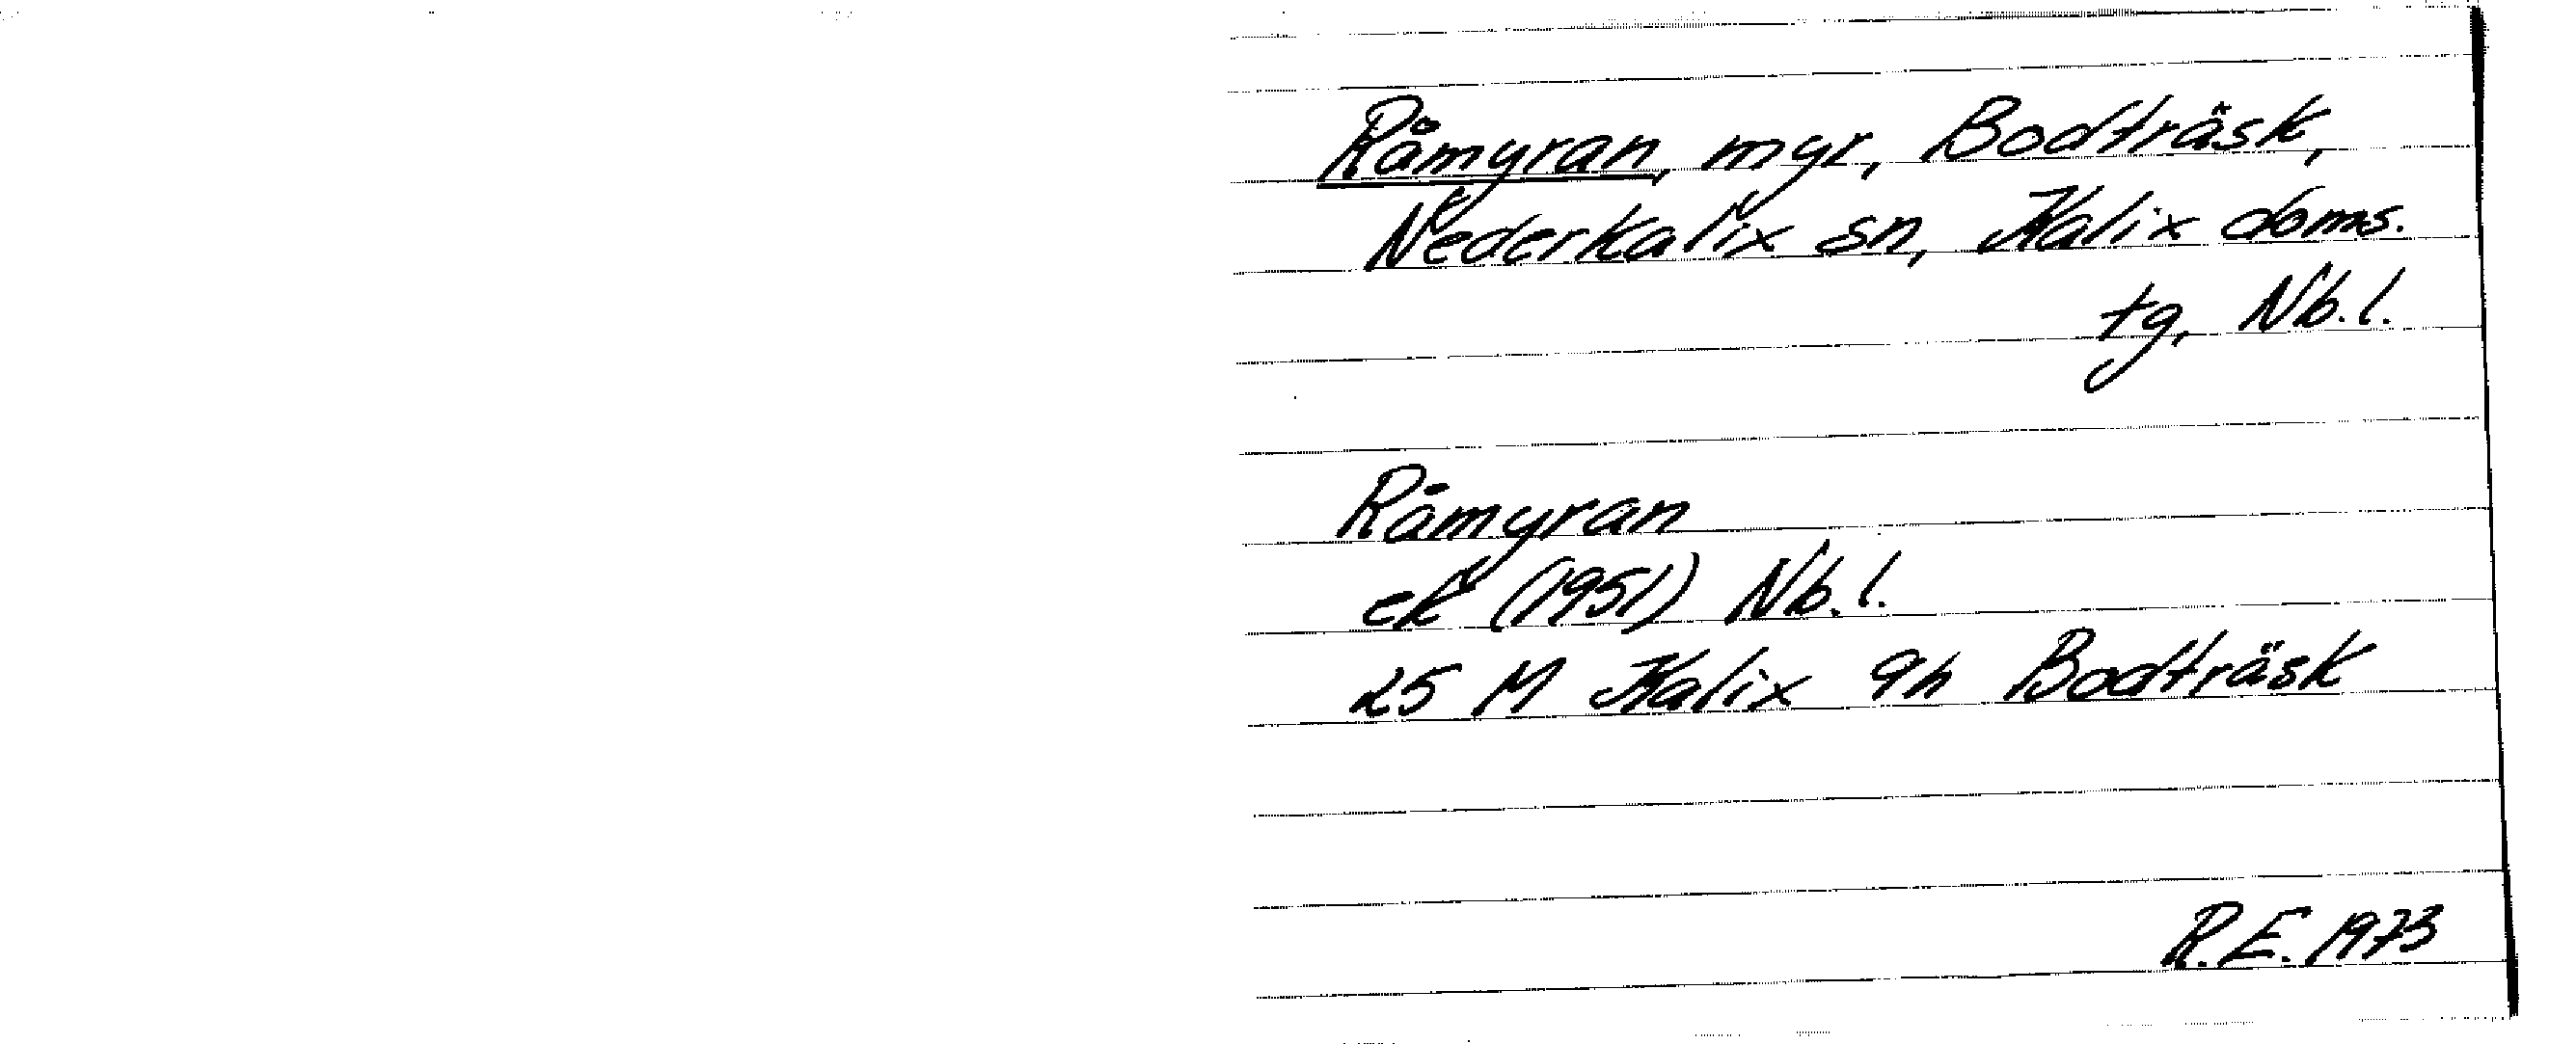 Råmyran, myr, Bodträsk,
Nederkalix sn, Kalix doms.
tg, Nb.l.
Råmyran
ek (1951) Nb.l.
25 M Kalix 9h Bodträsk
R.E. 1973